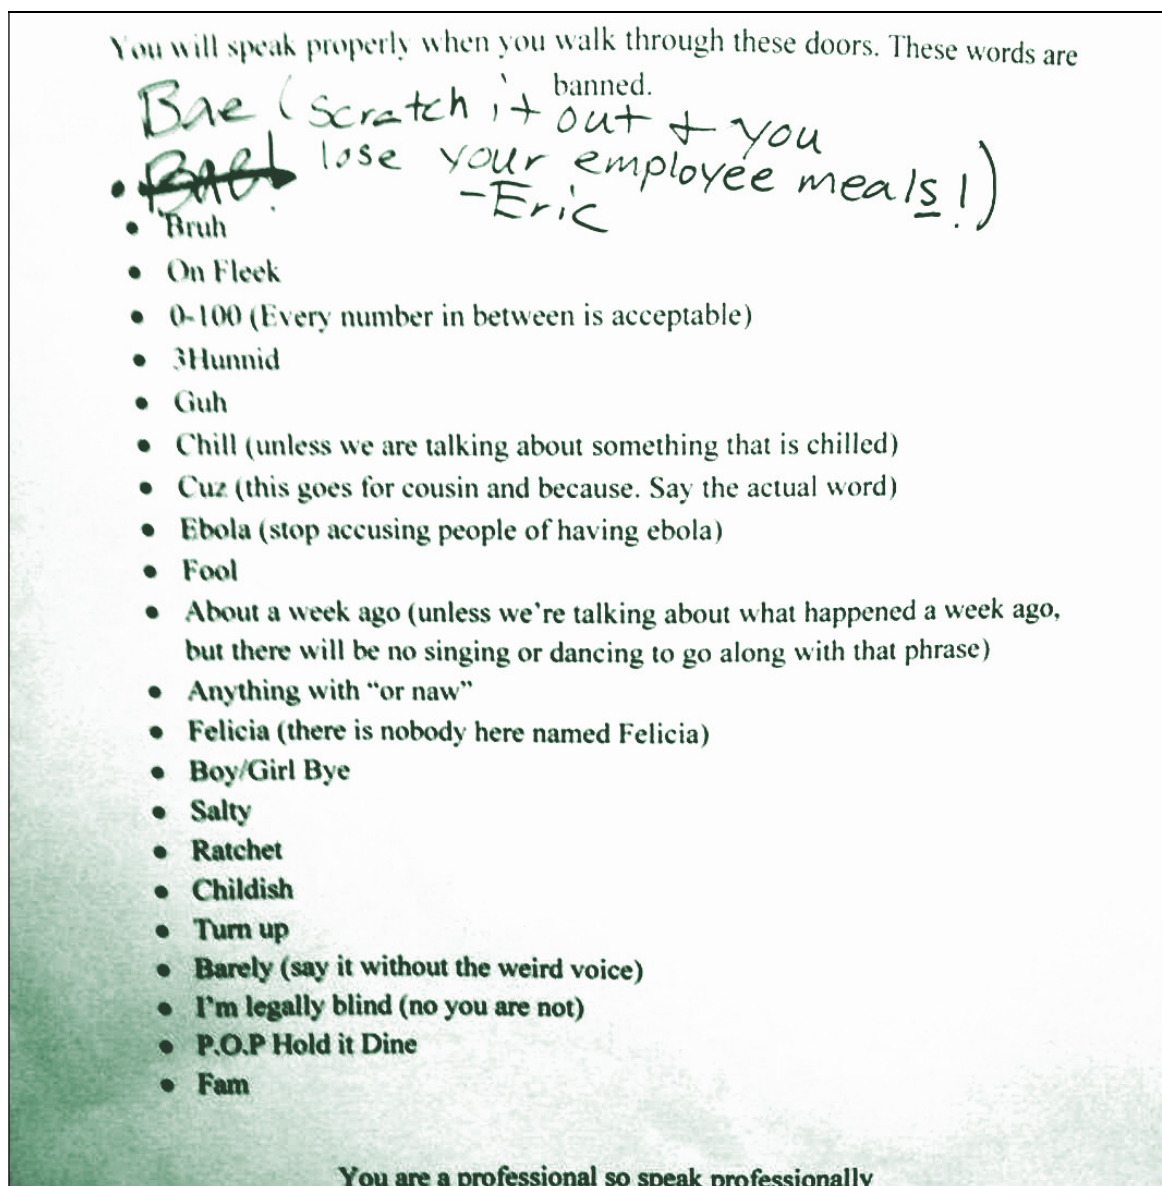 You will speak properly when you walk through these doors. These words are
banned.
Bae (scratch it out + you
lose your employee meals!)
-Eric
• Bae!
• Bruh
• On Fleek
• 0-100 (Every number in between is acceptable)
• 3Hunnid
• Guh
• Chill (unless we are talking about something that is chilled)
• Cuz (this goes for cousin and because. Say the actual word)
• Ebola (stop accusing people of having ebola)
• Fool
• About a week ago (unless we're talking about what happened a week ago,
but there will be no singing or dancing to go along with that phrase)
• Anything with “or naw”
• Felicia (there is nobody here named Felicia)
• Boy/Girl Bye
• Salty
• Ratchet
• Childish
• Turn up
• Barely (say it without the weird voice)
• I'm legally blind (no you are not)
• P.O.P Hold it Dine
• Fam
You are a professional so speak professionally